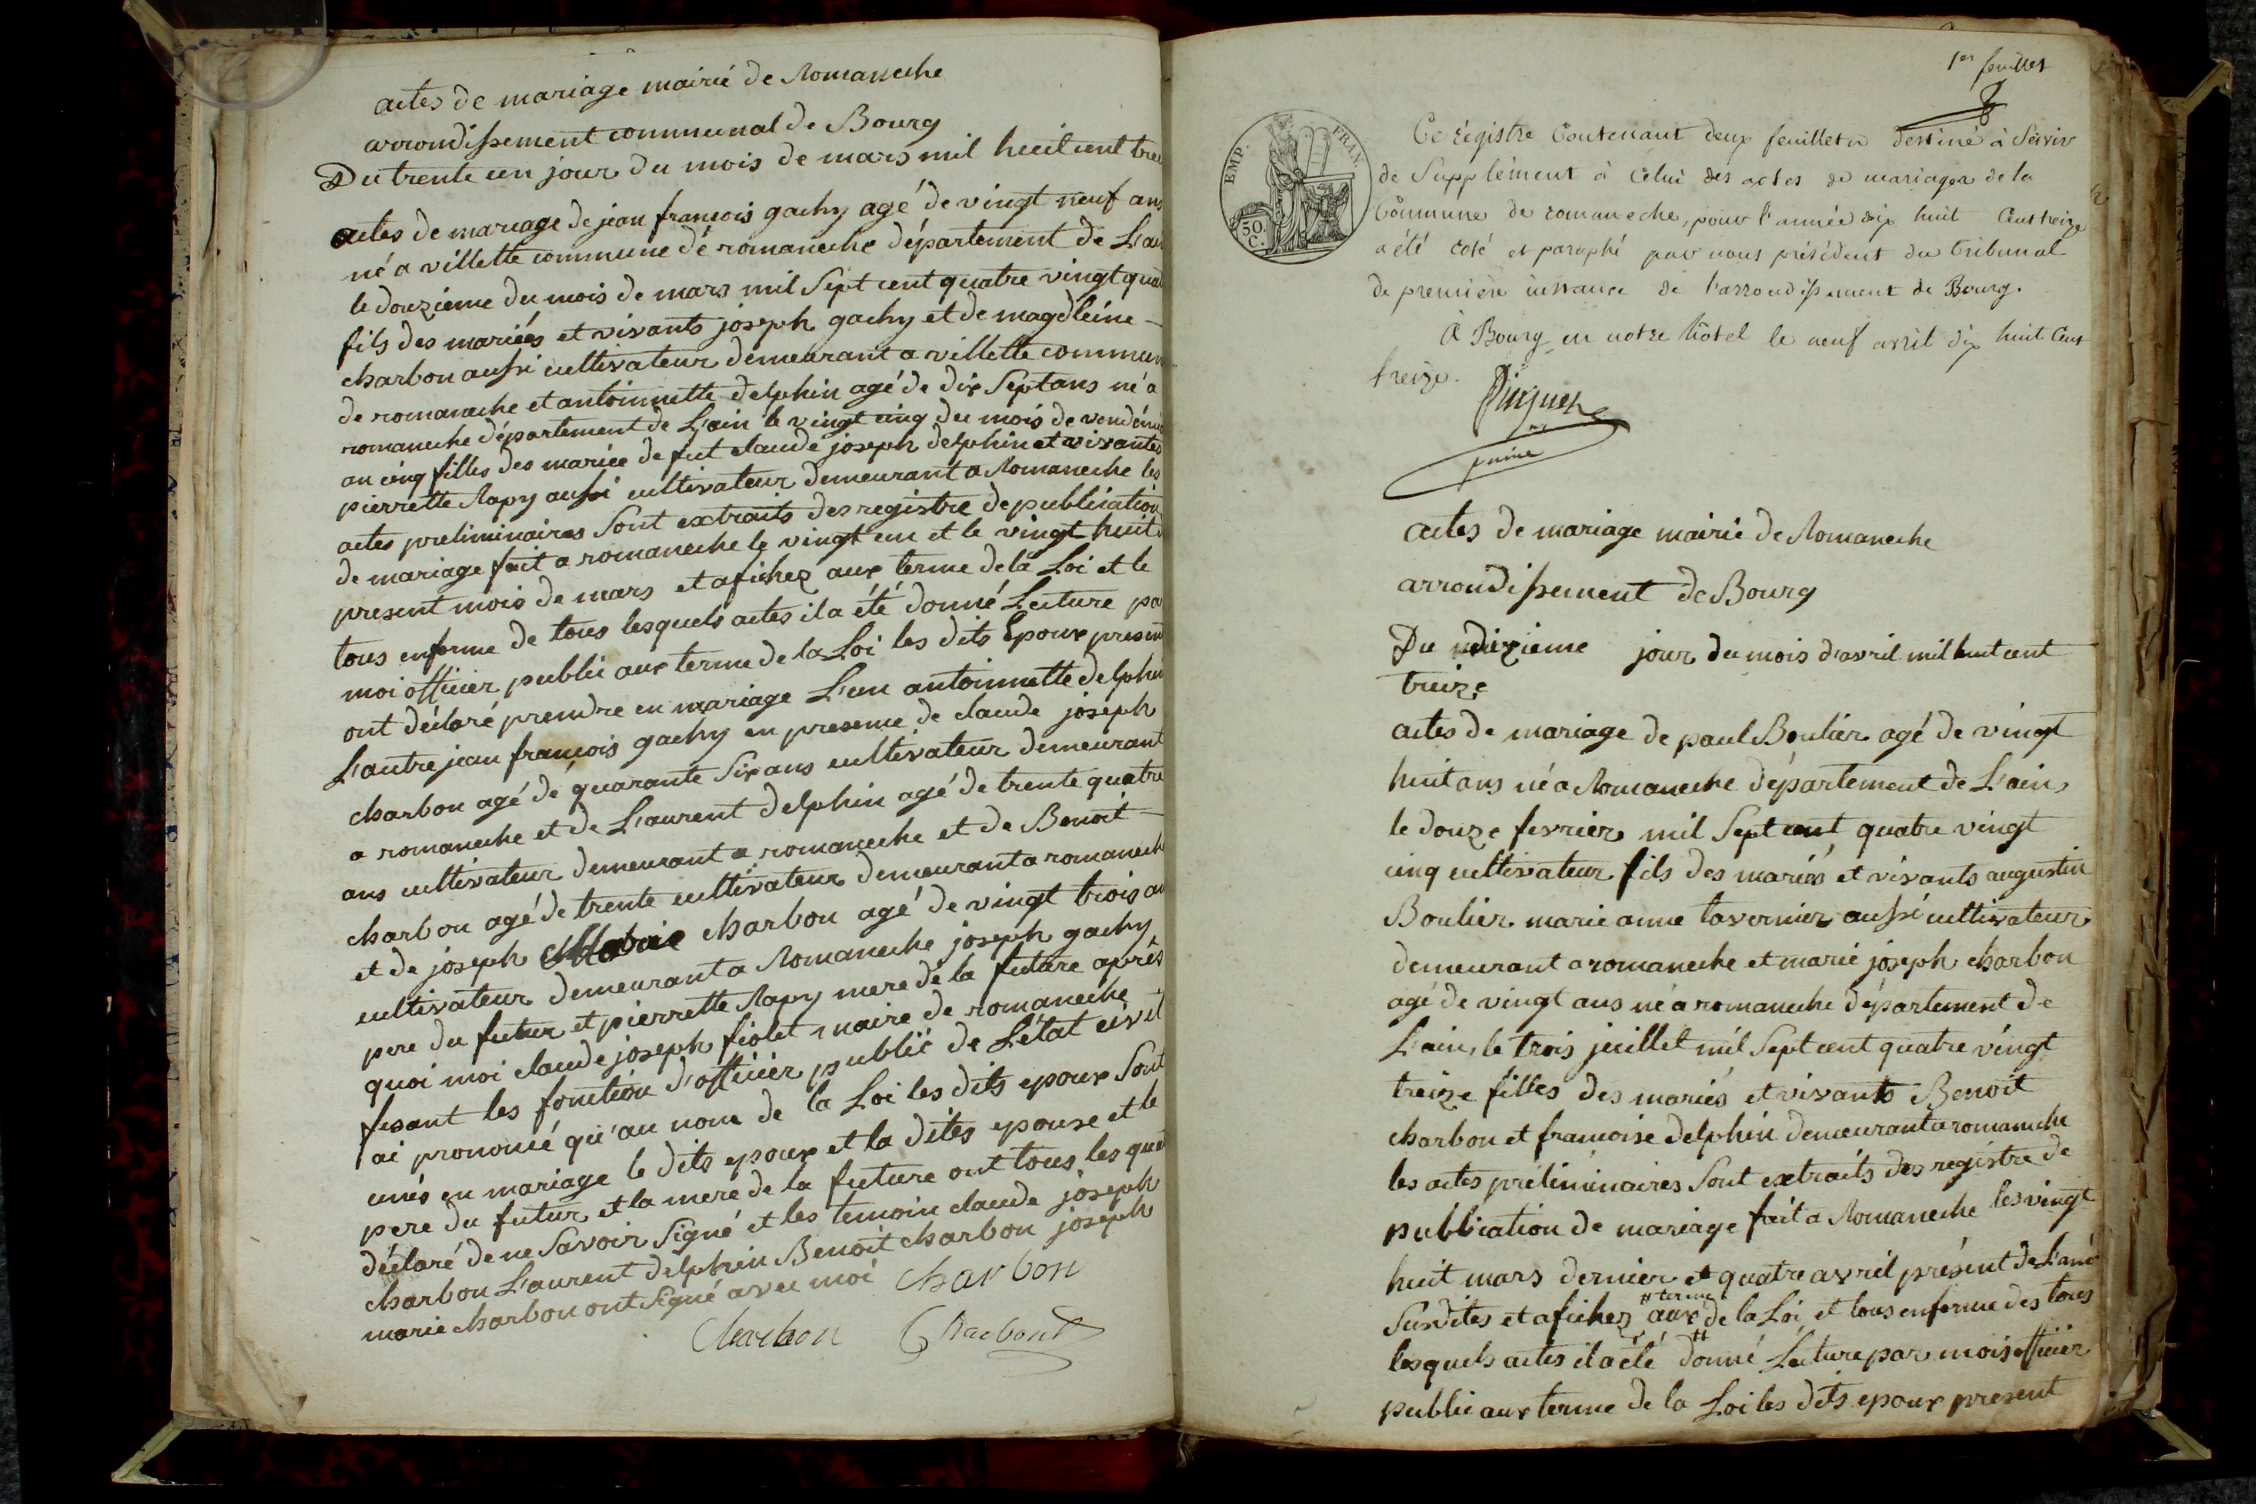 actes de mariage mairie de Romaneche
arrondissement communal de Bourg
Du trente un jour du mois de mars mil huit cent trei
actes de mariage de jean francois gachy agé de vingt neuf ans
né a villette commune de romaneche département de L'ain
le douzieme du mois de mars mil Sept cent quatre vingt quat
fils des mariées et vivants joseph gachy et de magdleine
charbon aussi cultivateur demeurant a villette commune
de romaneche et antoinnette delphin agé de dix Sept ans né a
romaneche département de L'ain le vingt cinq du mois de vendémi
an cinq filles des mariée de fut claude joseph delphin et vivantes
pierrette Rapy aussi cultivateur demeurant a Romaneche les
actes preliminaires Sont extraits des registre de publication
de mariage fait a romaneche le vingt un et le vingt huit d
present mois de mars et afichez aux terme de la Loi et le
tous enforme de tous lesquels actes il a été donné Lecture pa
moi officier public aux terme de la Loi les dits Epoux present
ont déclaré prendre en mariage L'un antoinnette delphin
L'autre jean francois gachy en presence de claude joseph
charbon agé de quarante Six ans cultivateur demeurant
a romaneche et de L'aurent delphin agé de trente quatre
ans cultivateur demeurant a romaneche et de Benoit
charbon agé de trente cultivateur demeurant a romanech
et de joseph Marie charbon agé de vingt trois an
cultivateur demeurant a Romaneche joseph gachy
pere du futur et pierrette Rapy mere de la future aprés
quoi moi claude joseph fiolet maire de romaneche
fesant les fonction d'officier public de L'état civil
ai prononcé qu'au nom de la Loi les dits epoux Sont
unis en mariage le dits epoux et la dites epouse et le
pere du futur et la mere de la future ont tous les que
déclaré de ne Savoir Signé et les temoin claude joseph
charbon L'aurent delphin Benoit charbon joseph
marie charbon ont Signé avec moi charbon
Charbon Charbont
1er feuillet
EMP. FRAN.
50. C.
Ce régistre Contenant deux feuillets destiné à Servir
de Supplément à Celui des actes de mariages de la
Commune de romaneche, pour l'année dix huit Cent treize
a été coté et paraphé par nous président du tribunal
de première instance de l'arrondissement de Bourg.
À Bourg en notre hôtel le neuf avril dix huit Cent
treize.
actes de mariage mairie de Romaneche
arrondissement de Bourg
Du dizieme jour du mois d'avril mil huit cent
treize
actes de mariage de paul Boulier agé de vingt
huit ans né a Romaneche département de L'ain
le douze fevrier mil Sept cent quatre vingt
cinq cultivateur fils des mariés et vivants augustin
Boulier marie anne tavernier aussi cultivateur
demeurant a romaneche et marie joseph charbon
agé de vingt ans né a romaneche département de
L'ain, le trois juillet mil Sept cent quatre vingt
treize filles des mariés et vivants Benoit
charbon et francoise delphin demeurant a romaneche
les actes préliminaires Sont extraits des registre de
publication de mariage fait a Romaneche les vingt
huit mars dernier et quatre avril présent de L'ané
terme
Susdites et afichez aux de la Loi et tous enforme des tous
lesquels actes il a été donné Lecture par mois officier
public aux terme de la Loi les dits epoux present